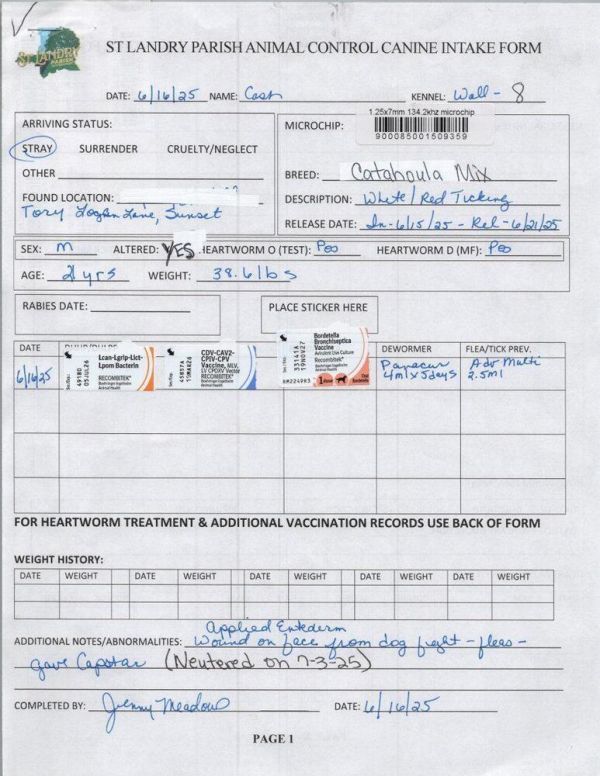 ST LANDRY
PARISH
ST LANDRY PARISH ANIMAL CONTROL CANINE INTAKE FORM
DATE: 6/16/25 NAME: Cash KENNEL: Wall - 8
ARRIVING STATUS:
STRAY SURRENDER CRUELTY/NEGLECT
OTHER
FOUND LOCATION:
Tory Logan Lane, Sunset
MICROCHIP:
1.25x7mm 134.2khz microchip
900085001509359
BREED: Catahoula Mix
DESCRIPTION: White/Red Ticking
RELEASE DATE: In-6/15/25 - Rel-6/21/25
SEX: M ALTERED: YES HEARTWORM O (TEST): Pos HEARTWORM D (MF): Pos
AGE: 2 yrs WEIGHT: 38.6 lbs
RABIES DATE:
PLACE STICKER HERE
DATE DEWORMER FLEA/TICK PREV.
6/16/25
Lcan-Lgrip-Lict-
Lpom Bacterin
RECOMBITEK®
Boehringer Ingelheim
Animal Health
49180
05JUL26
CDV-CAV2-
CPIV-CPV
Vaccine, MLV,
LV CPDXV Vector
RECOMBITEK®
Boehringer Ingelheim
Animal Health
Bordetella
Bronchiseptica
Vaccine
Avirulent Live Culture
Recombitek®
Boehringer Ingelheim
Animal Health
1 Dose
Panacur
4ml x 5days
Adv Multi
2.5ml
FOR HEARTWORM TREATMENT & ADDITIONAL VACCINATION RECORDS USE BACK OF FORM
WEIGHT HISTORY:
DATE WEIGHT DATE WEIGHT DATE WEIGHT DATE WEIGHT DATE WEIGHT
Applied Entederm
ADDITIONAL NOTES/ABNORMALITIES: Wound on face from dog fight - fleas -
gave Capstar (Neutered on 7-3-25)
COMPLETED BY: Jenny Meadows DATE: 6/16/25
PAGE 1